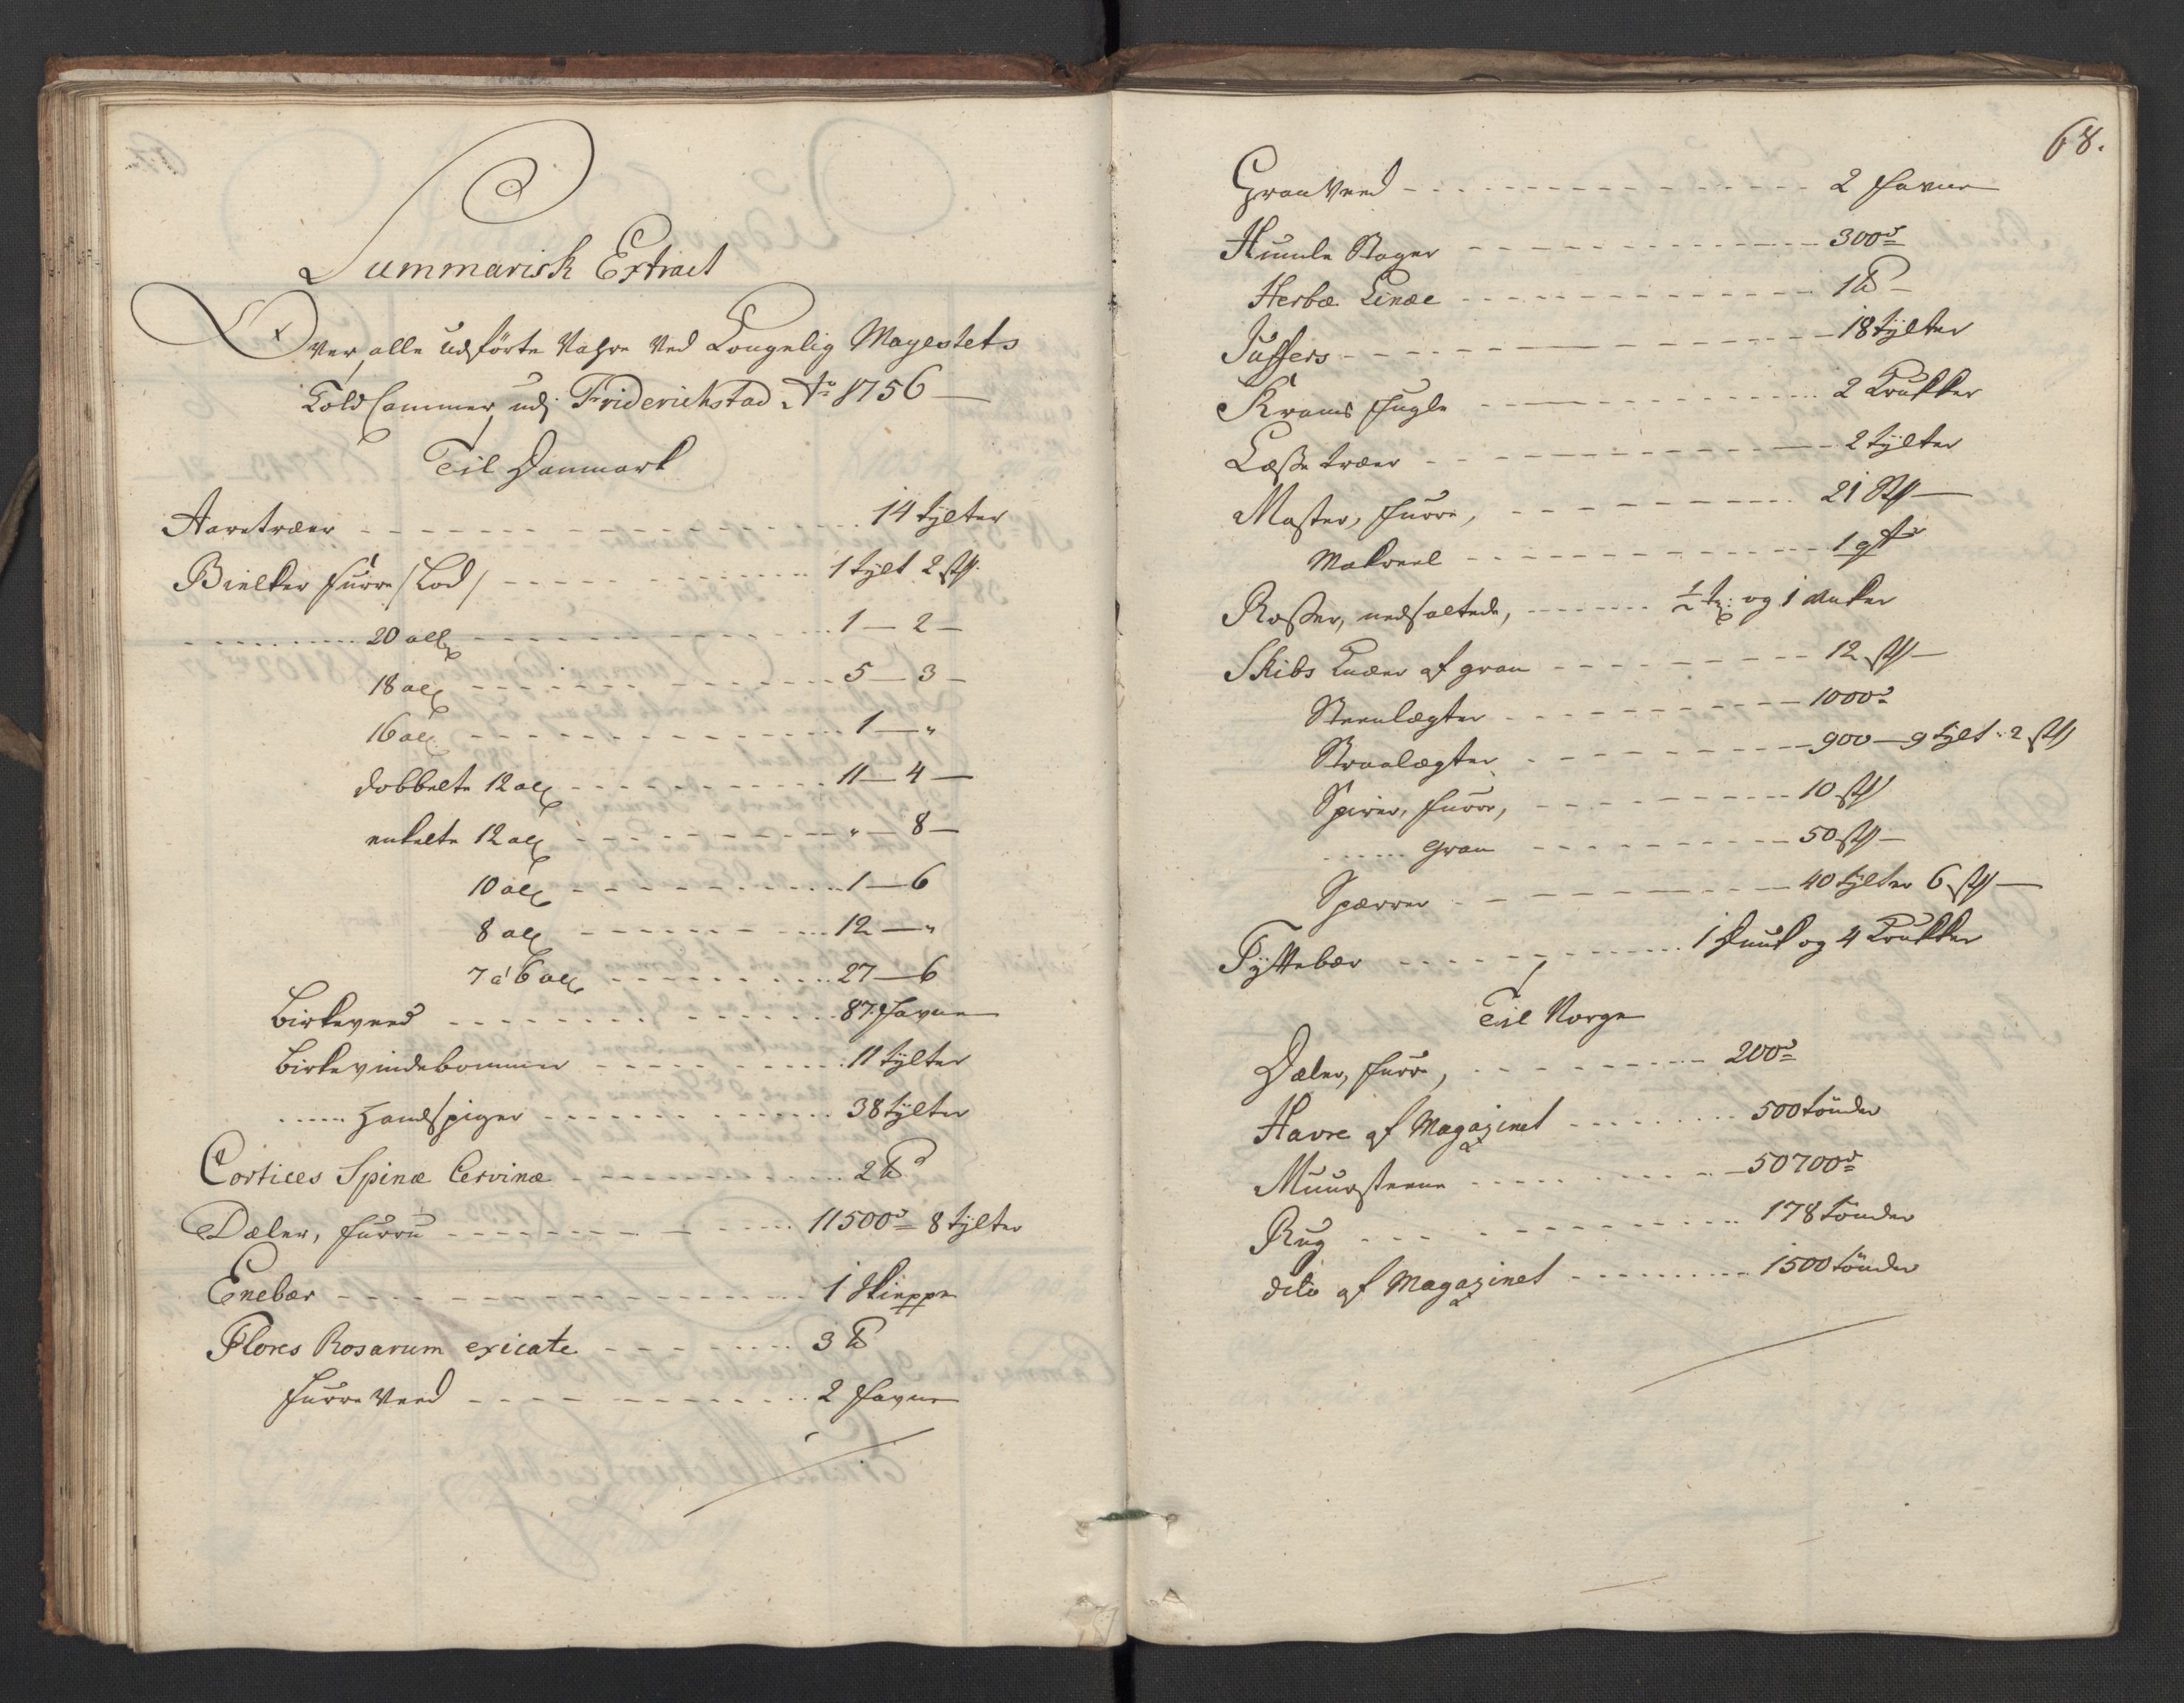 Summarisk Extract
Over alle udførte Vahre ved Kongelig Mayestets
Told Cammer udj Friderichstad Ao 1756
Til Danmark
Aaretræer - - - 14 tylter
Bielker furre /Lod/ - - - 1 tylt 2 st
20 all - - - 1 — 2 —
18 all - - - 5 — 3 —
16 all - - - 1 — "
dobbelte 12 all - - - 11 — 4 —
enkelte 12 all - - - " — 8 —
10 all - - - 1 — 6
8 all - - - 12 — "
7 á 6 all - - - 27 — 6
Birkeveed - - - 87 favne
Birkevindebommer - - - 11 tylter
- - - Handspiger - - - 38 tylter
Cortices Spinæ Cervinæ - - - 2 ℔
Dæler, furru - - - 11500d 8 tylter
Enebær - - - 1 Skieppe
Flores Rosarum exicate - - - 3 ℔
furre Veed - - - 2 favne
68.
Gran Veed - - - 2 favne
Humle Stager - - - 300d
Herbæ Linæe - - - 1 ℔ —
Juffers - - - 18 tylter
Krams fugle - - - 2 Krukker
Læsse træer - - - 2 tylter
Master, furre, - - - 21 St —
Makreel - - - 1 qtr
Røsser, nedsaltede, - - - ½ tr: og 1 Anker
Skibs Knæer af gran - - - 12 st —
Steenlægter - - - 1000d
Straalægter - - - 900 — 9 tylt 2 st
Spirer, furre, - - - 10 st
- - - gran - - - 50 st —
Spærrer - - - 40 tylter 6 st —
Tyttebær - - - 1 Dunk og 4 Krukker
Til Norge
Dæler, furre, - - - 200d
Havre af Magazinet - - - 500 tønder
Muursteene - - - 50700d
Rug - - - 178 tønder
dito af Magazinet - - - 1500 tønder